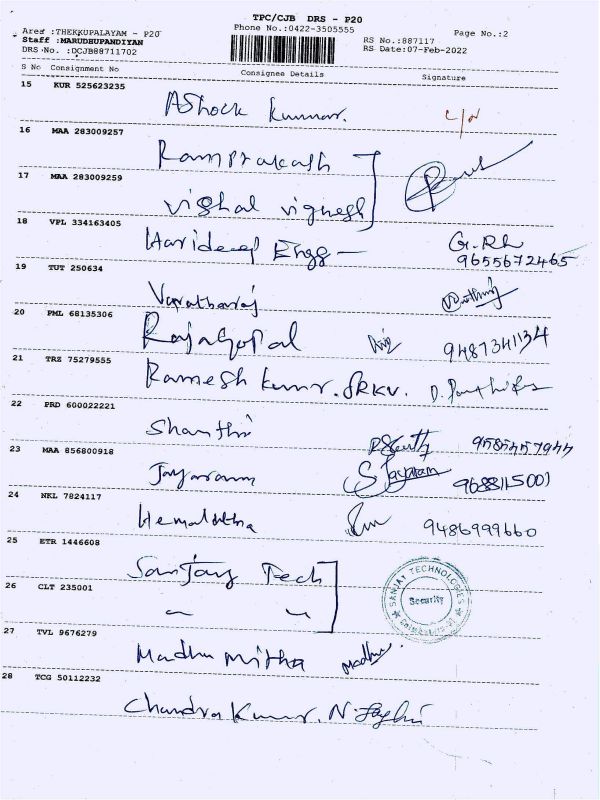 TPC/CJB DRS - P20
Area :THEKKUPALAYAM - P20
Phone No.:0422-3505555
RS No.:887117
Page No.:2
Staff :MARUDHUPANDIYAN
RS Date:07-Feb-2022
DRS No. :DCJB88711702
S No Consignment No Consignee Details Signature
15 KUR 525623235
Ashock Kumar.
16 MAA 283009257
Ramprakash
17 MAA 283009259
Vishal Vignesh
18 VPL 334163405
Harideep Engg -
9655672465
19 TUT 250634
Varatharaj
20 PML 68135306
RajaGopal 9487341134
21 TRZ 75279555
Ramesh Kumar. SRKV.
22 PRD 600022221
Shanthi
23 MAA 856800918
Jayaram S Jayaram 9688115001
24 NKL 7824117
Hemalatha 9486999660
25 ETR 1446608
Sanjay Tech
SANJAY TECHNOLOGIES
Security
26 CLT 235001
27 TVL 9676279
Madhu mitha Madhu
28 TCG 50112232
Chandra Kumar.